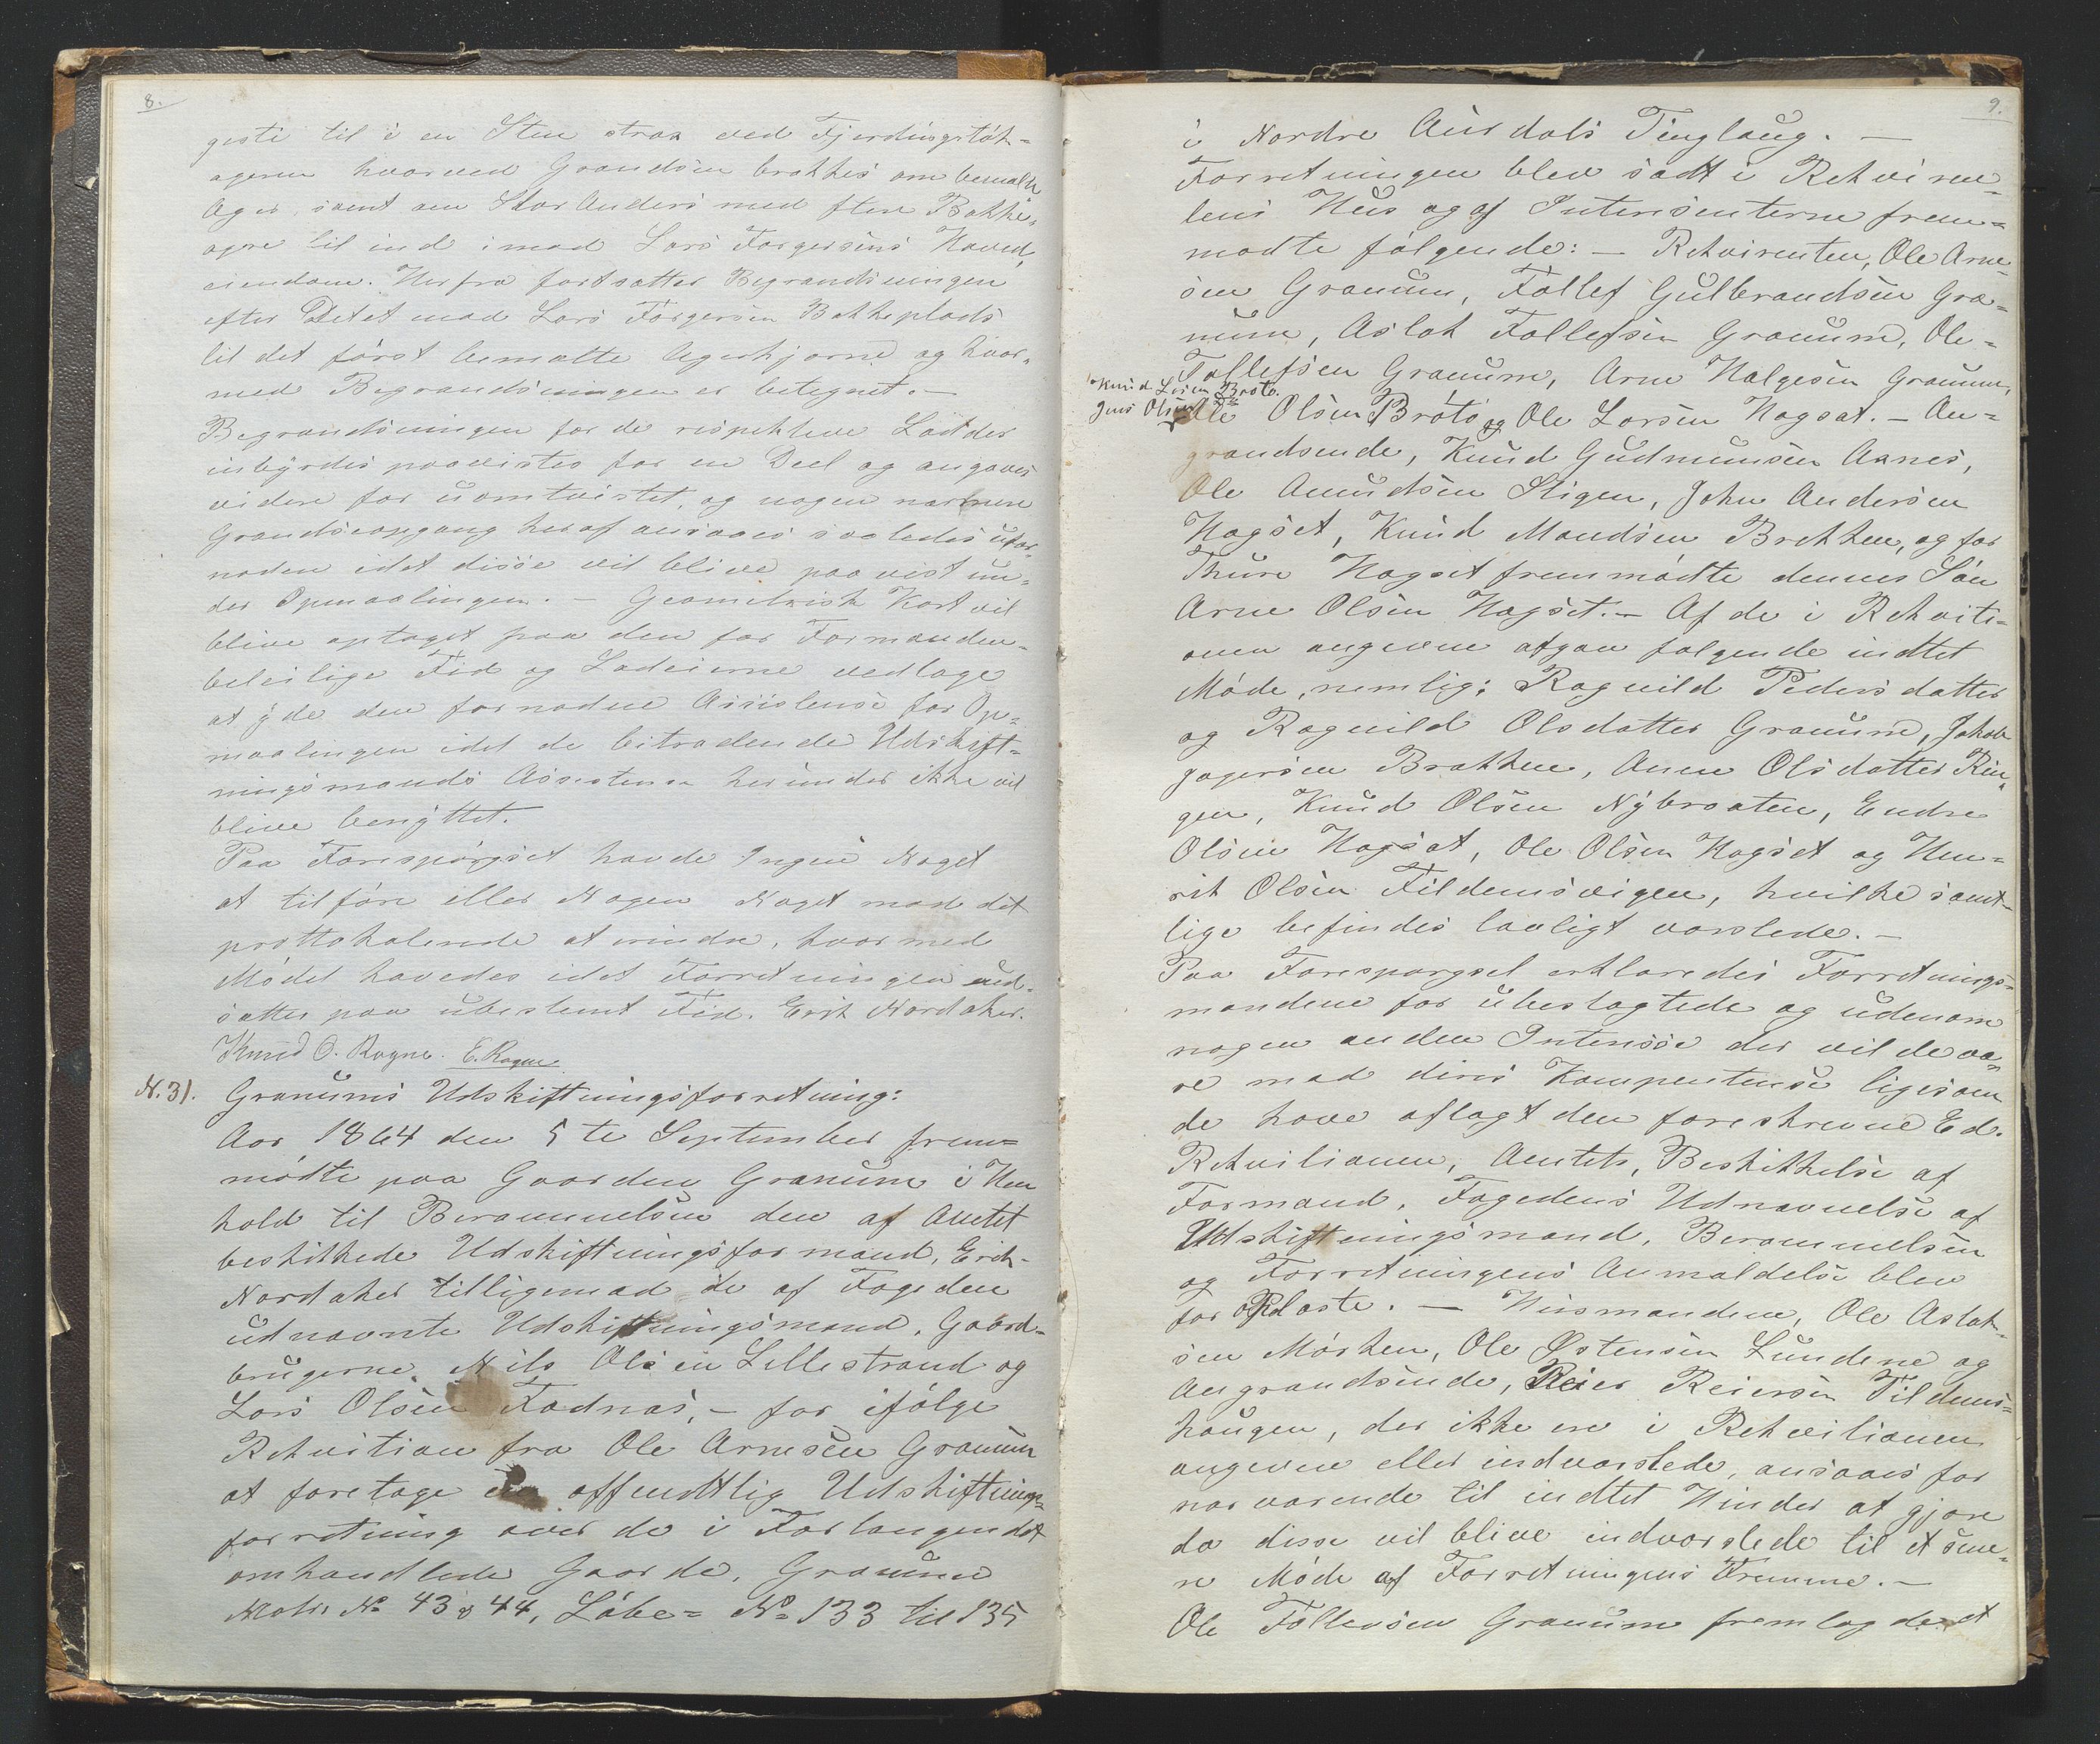 8.
gesti til i en Sten strax ved Fjerdingstök-
ageren hvorved Grændsen brækkes om bemalte
Ager, samt om Stor Anders med flere Bække-
agre til ind imod Lars Torgersens Hoved-
eiendom. Herfra fortsætter Begrændsningen
efter Delet mod Lars Torgersen Bækkeplads
til det först bemælte Agerhjorne og hvor-
med Begrændsningen er betegnet. –
Begrændsningen for de respektive Lodder
inbyrdes paavistes for en Deel og angaves
videre for uomtvistet, og nogen nærmere
Grændseopgang heraf ansaaes saaledes ufor-
nöden idet disse vil blive paavist un-
der Opmaalingen. – Geometrisk Kart vil
blive optaget paa den for Formanden
beleilige Tid og Lodeierne vedtage
at yde den fornödne Assistense for Op-
maalingen idet de bitrædende Udskift-
ningsmænds Assistense herunder ikke vil
blive benyttet.
Paa Forespörgsel havde Ingen Noget
at tilföre eller Nogen Noget mod det
prottokolerede at erindre, hvormed
Mödet hævedes idet Forretningen ud-
sættes paa ubestemt Tid. Erik Nordaker.
Knud O. Rogne. E. Rogne
N. 31. Granums Udskiftningsforretning:
Aar 1864 den 5te September frem-
mödte paa Gaarden Granum i Hen
hold til Berammelsen den af Amtet
beskikkede Udskiftningsformand, Erik
Nordaker tilligemed de af Fogeden
udnævnte Udskiftningsmænd, Gaard-
brugerne, Nils Olsen Lillestrand og
Lars Olsen Fodnæs, – for ifölge
Rekvition fra Ole Arnesen Granum
at foretage en offendtlig Udskiftnings-
forretning over de i Forlangendet
omhandlede Gaarde, Granum
Matr. No 43 & 44, Löbe- No 133 til 135
9.
i Nordre Aurdals Tinglaug. –
Forretningen blev sadt i Rekviren-
tens Hus og af Intersenterne frem-
mödte fölgende: – Rekvirenten, Ole Arne-
sen Granum, Tollef Gulbrandsen Gra-
num, Aslak Tollefsen Granum, Ole
Tollefsen Granum, Arne Halgesen Granum,
Knud Larsen Bröto.
Jens Olsen Do
Ole Olsen Bröto og Ole Larsen Hagsæt. – An-
grændsende, Knud Gudmunsen Aanes,
Ole Amudsen Stigen, John Andersen
Hagset, Knud Mandsen Brekken, og for
Thure Hagset fremmödte dennes Sön
Arne Olsen Hagset. – Af de i Rekviti-
onen angivene afgav fölgende indtet
Möde, nemlig: Ragnild Pedersdatter
og Ragnild Olsdatter Granum, Jakob
Jogersen Brækken, Anne Olsdatter Rin-
gen, Knud Olsen Nybraaten, Endre
Olsen Hagsæt, Ole Olsen Hagset og Hen-
rik Olsen Tildensvigen, hvilke samt-
lige befindes lovligt varslede. –
Paa Forespörgsel erklæredes Forretnings-
mændene for ubeslagtede og udenom
nogen anden Interesse der vilde væ-
re mod deres Kompentense ligesom
de have aflagt den foreskrevne Ed.
Rekvitionen, Amtets, Beskikkelse af
Formand, Fogedens Udnævnelse af
Udskiftningsmænd, Berammelsen
og Forretningens Anmældelse blev
for oplæste. – Husmændene, Ole Aslak-
sen Mörken, Ole Østensen Lundene og
Angrændsende, Reier Reiersen Tildens-
haugen, der ikke ere i Rekvitionen
angivne eller indvarslede, ansaaes for
nærværende til indtet Hinder at gjöre
da disse vil blive indvarslede til et sene-
re Möde af Forretningens Fremme. –
Ole Tollevsen Granum fremlagde et